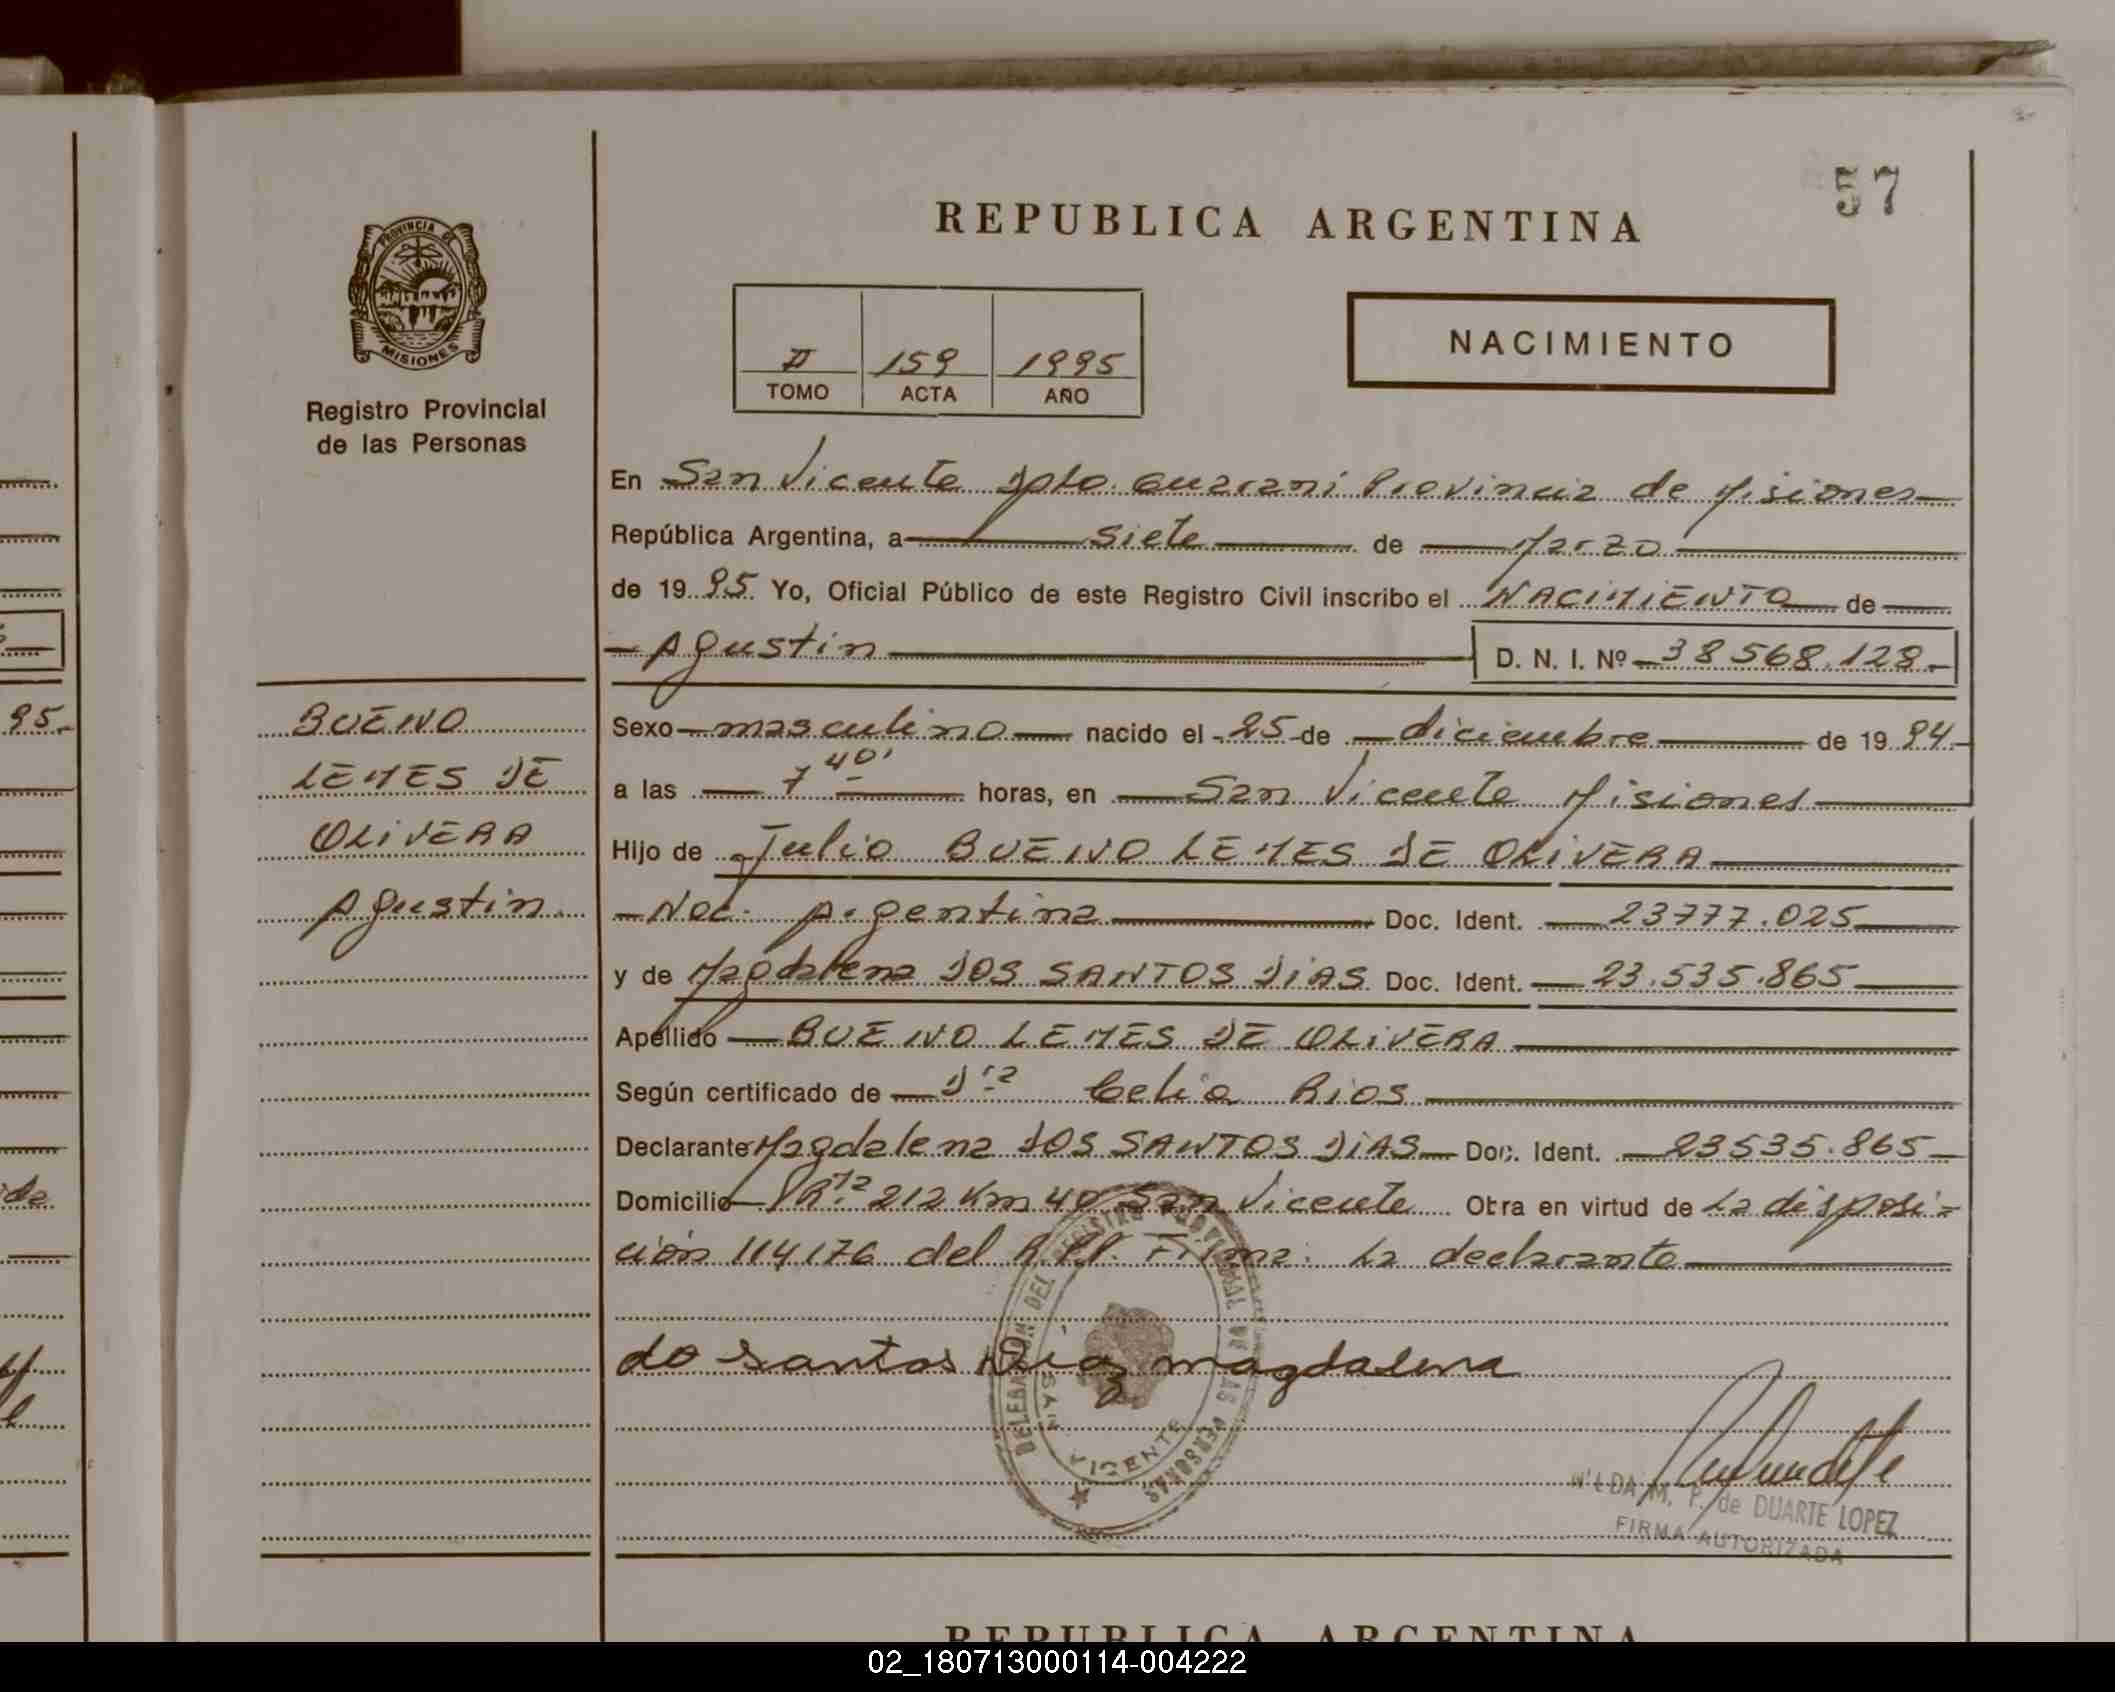 57
REPUBLICA ARGENTINA
PROVINCIA DE
MISIONES
Registro Provincial
de las Personas
II 159 1995
TOMO ACTA AÑO
NACIMIENTO
En San Vicente Dpto. Guarani Provincia de Misiones
República Argentina, a siete de Marzo
de 1995. Yo, Oficial Público de este Registro Civil inscribo el NACIMIENTO de
Agustin D. N. I. Nº 38568.128.-
95.-
BUENO
LEMES DE
OLIVERA
Agustin.
Sexo masculino nacido el 25 de diciembre de 1994.-
a las 7 40' horas, en San Vicente Misiones
Hijo de Julio BUENO LEMES DE OLIVERA
Nac. Argentina Doc. Ident. 23777.025
y de Magdalena DOS SANTOS DIAS Doc. Ident. 23.535.865
Apellido BUENO LEMES DE OLIVERA
Según certificado de Dra Celia Rios
Declarante Magdalena DOS SANTOS DIAS Doc. Ident. 23535.865
Domicilio Rta. 212 Km 40 San Vicente Obra en virtud de La disposi=
ción 114176 del Firma: La declarante
do santos Diaz magdalena
DELEGACION DEL REGISTRO PROVINCIAL DE LAS PERSONAS
SAN VICENTE
WILDA M. P. de DUARTE LOPEZ
FIRMA AUTORIZADA
REPUBLICA ARGENTINA
02_180713000114-004222